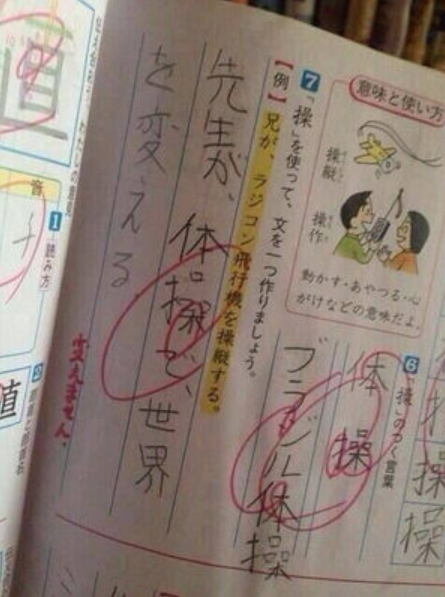 意味と使い方
操縦
操作
動かす・あやつる・心
がけなどの意味だよ。
6 「操」のつく言葉
体操
ブラジル体操
操
操
7 「操」を使って、文を一つ作りましょう。
【例】兄が、ラジコン飛行機を操縦する。
先生が、体操で、世界
を変える
変えません。
直
音
1 読み方
値